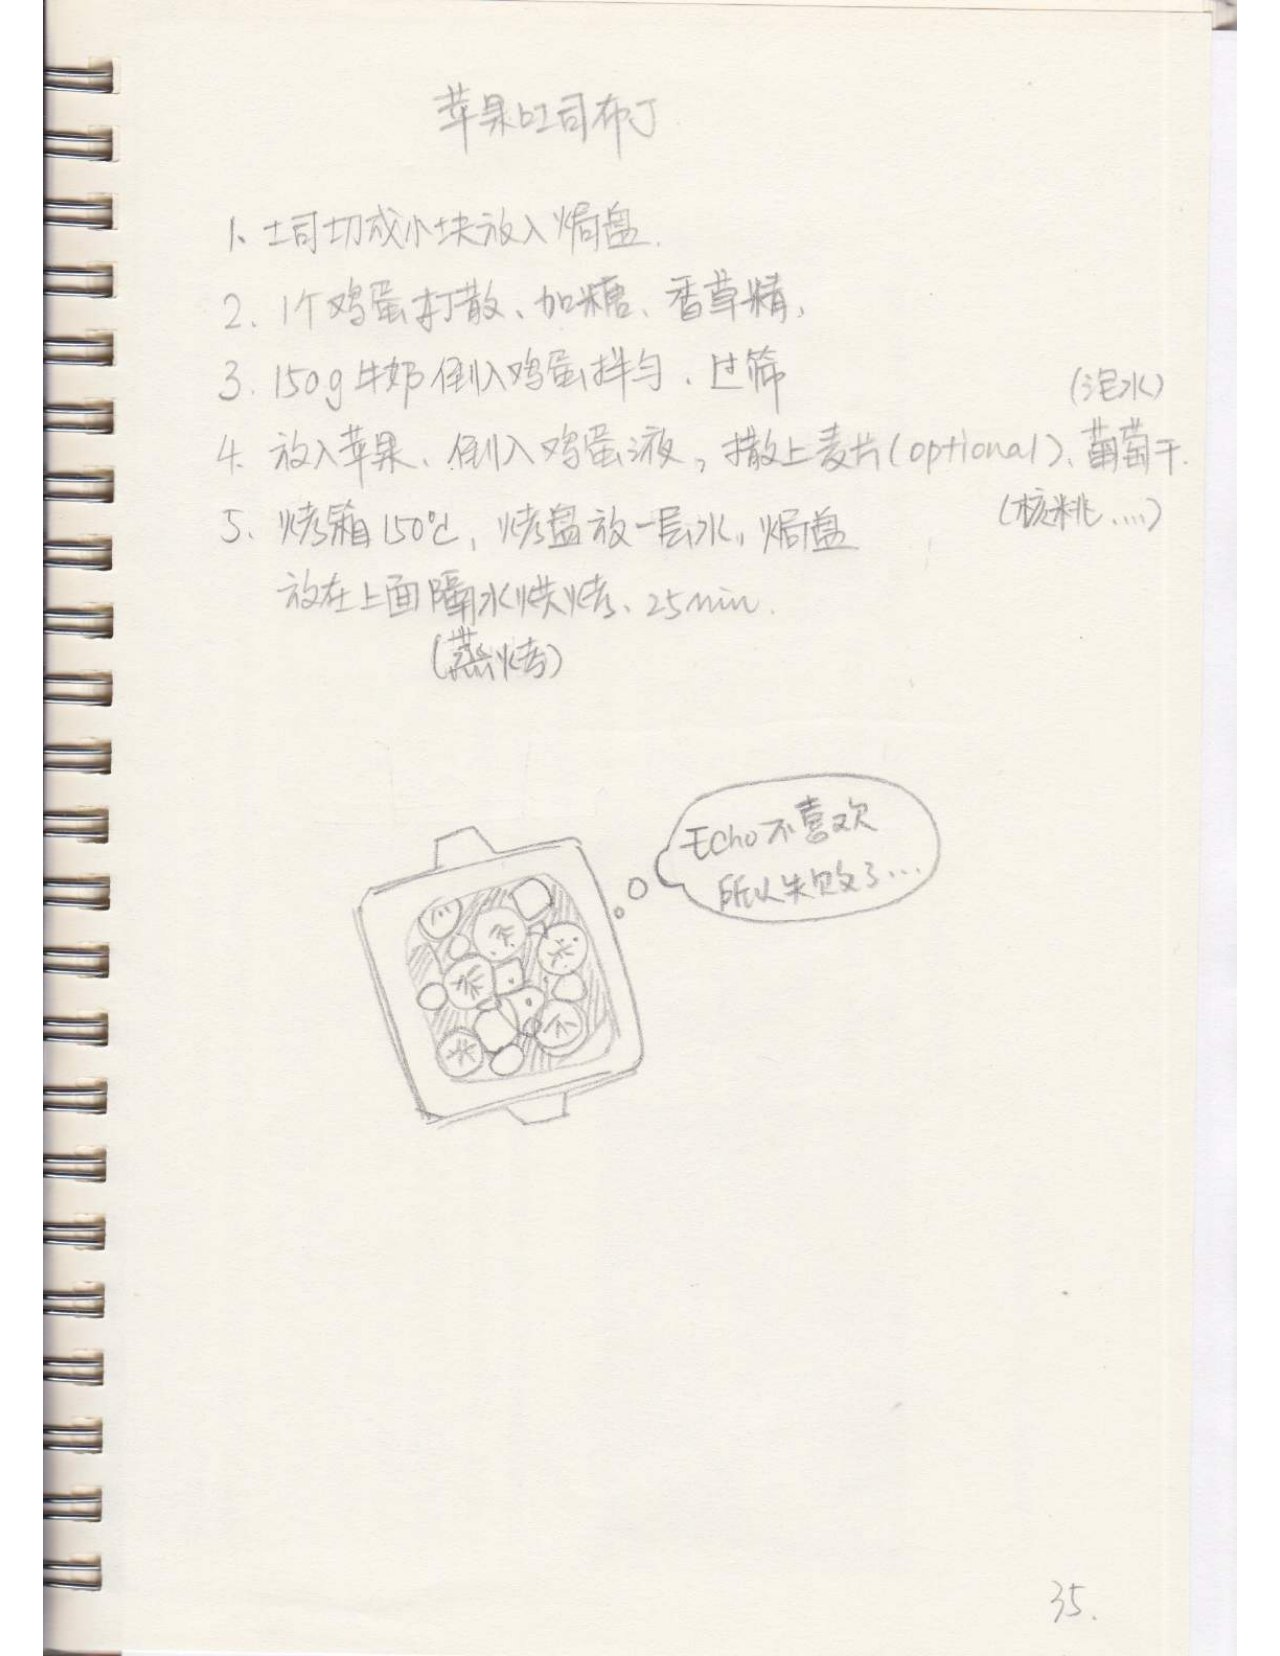 苹果吐司布丁
1、土司切成小块放入焗盘.
2、1个鸡蛋打散、加糖、香草精,
3、150g牛奶倒入鸡蛋拌匀、过筛
(泡水)
4、放入苹果、倒入鸡蛋液,撒上麦片(optional)、葡萄干.
(核桃、...)
5、烤箱150℃,烤盘放一层水,焗盘
放在上面隔水烘烤、25min.
(蒸烤)
Echo不喜欢
所以失败了...
35.